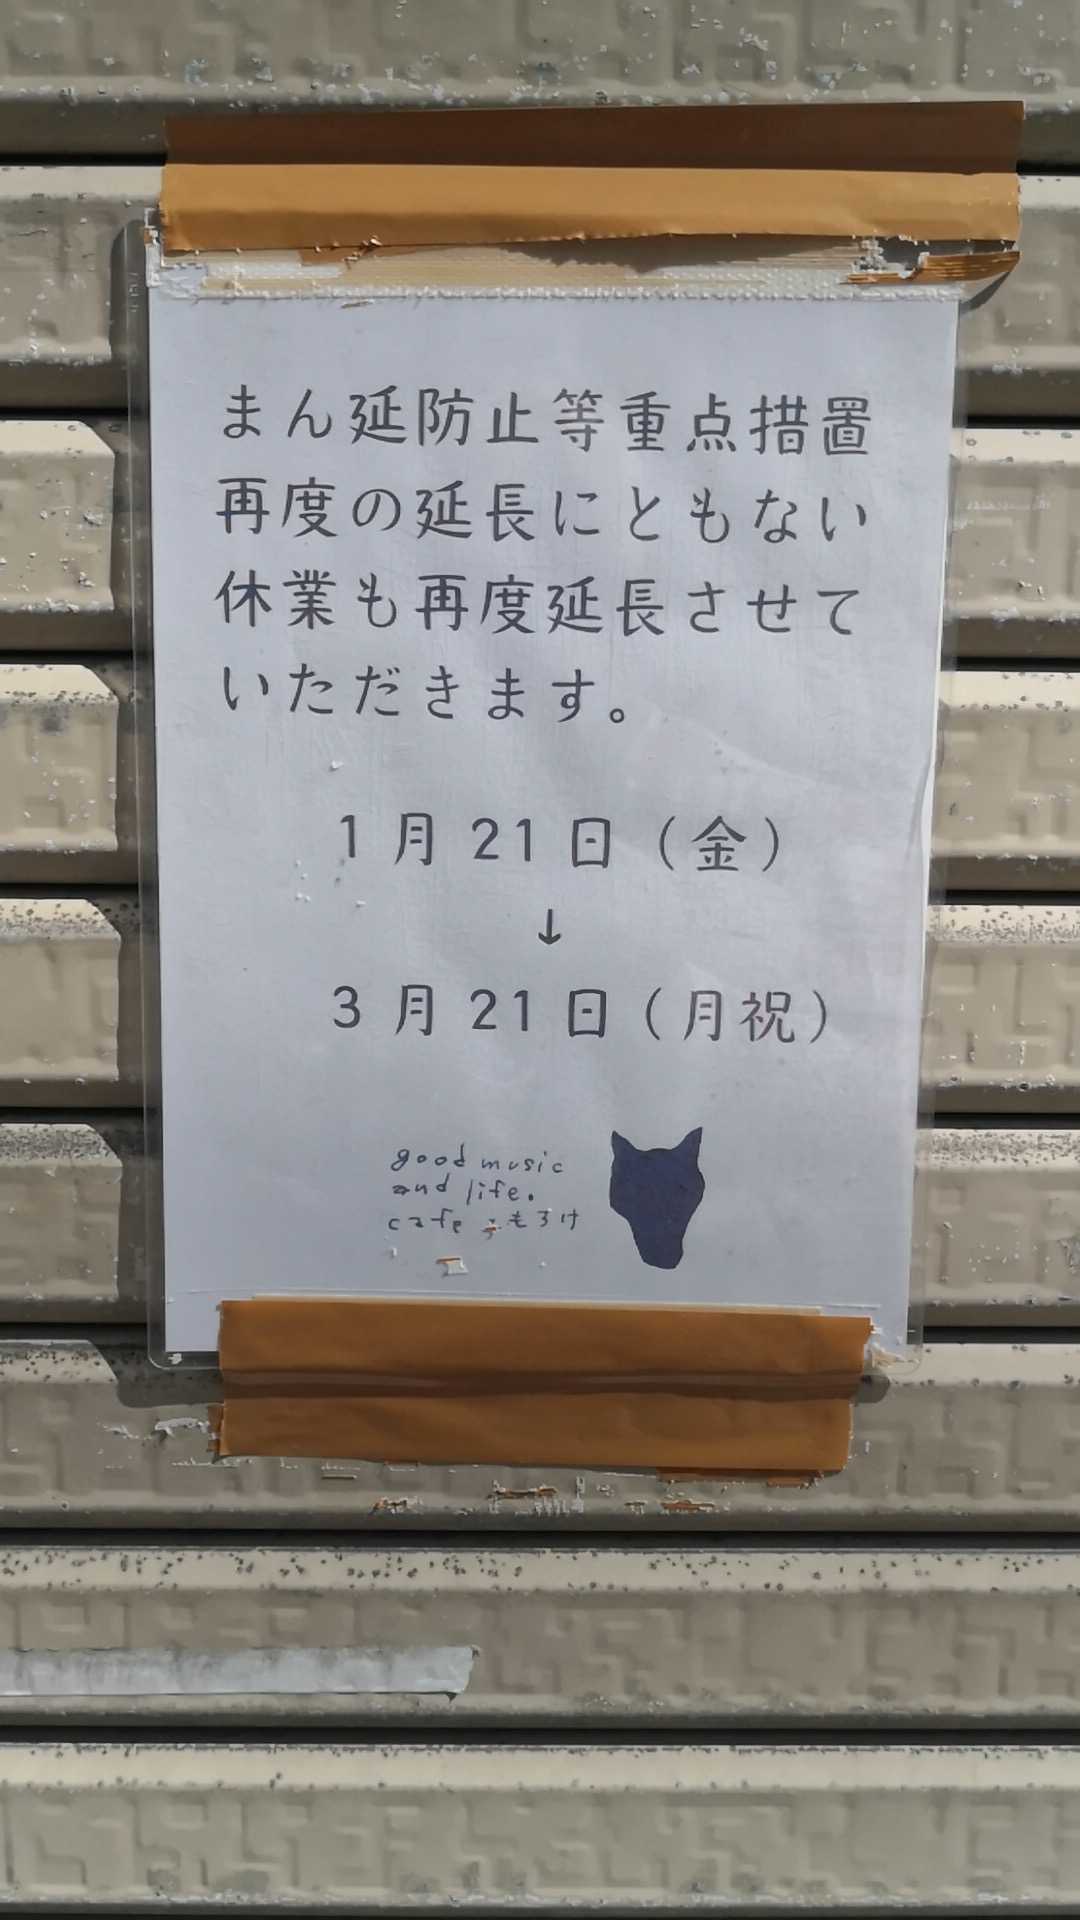 まん延防止等重点措置
再度の延長にともない
休業も再度延長させて
いただきます。
1月21日（金）
↓
3月21日（月祝）
good music
and life.
cafe もろけ